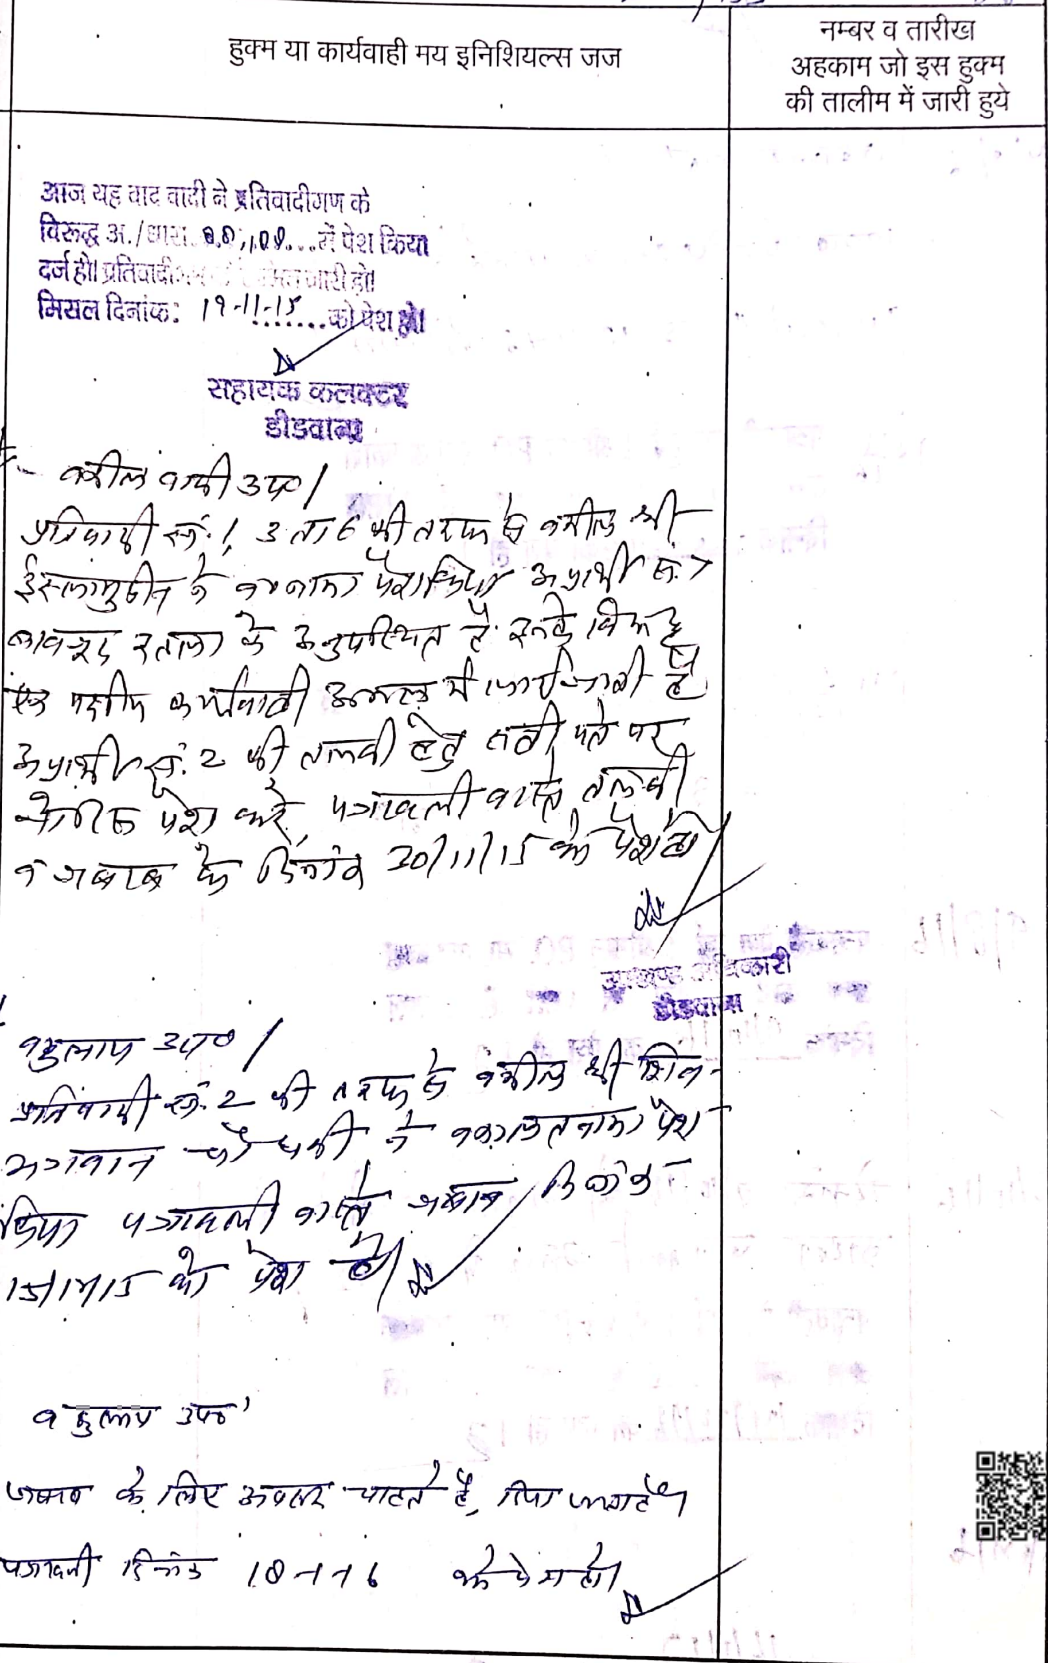 हुक्म या कार्यवाही मय इनिशियल्स जज
नम्बर व तारीख
अहकाम जो इस हुक्म
की तालीम में जारी हुये
आज यह वाद वादी ने प्रतिवादीगण के
विरूद्ध अ./धारा 88,188 में पेश किया
दर्ज हो। प्रतिवादी जारी हो।
मिसल दिनांक: 19-11-15 को पेश हो।
सहायक कलक्टर
डीडवाना
वकील वादी उप०/
प्रतिवादी सं. 1, 3 ता 6 की तरफ से वकील श्री
ईस्लामुद्दीन ने व०नामा पेश किया अप्रार्थी सं.
बावजूद के अनुपस्थित है इनके विरूद्ध
एक पक्षीय कार्यवाही अमल में लायी जाती है
अप्रार्थी सं. 2 की तलबी हेतु सही पते पर
नोटिस पेश करे, पत्रावली वास्ते तलबी
व जबाब के दिनांक 20/11/15 को पेश हो
उपखण्ड अधिकारी
डीडवाना
वकुलाय उप०/
प्रतिवादी सं. 2 की तरफ से वकील श्री शिव-
भगवान चौधरी ने वकालतनामा पेश
किया पत्रावली वास्ते जबाब दिनांक
को पेश हो/
वकुलाय उप०
जबाब के लिए अवसर चाहते है, दिया जाता है।
पत्रावली दिनांक 18-1-16 को पेश हो।